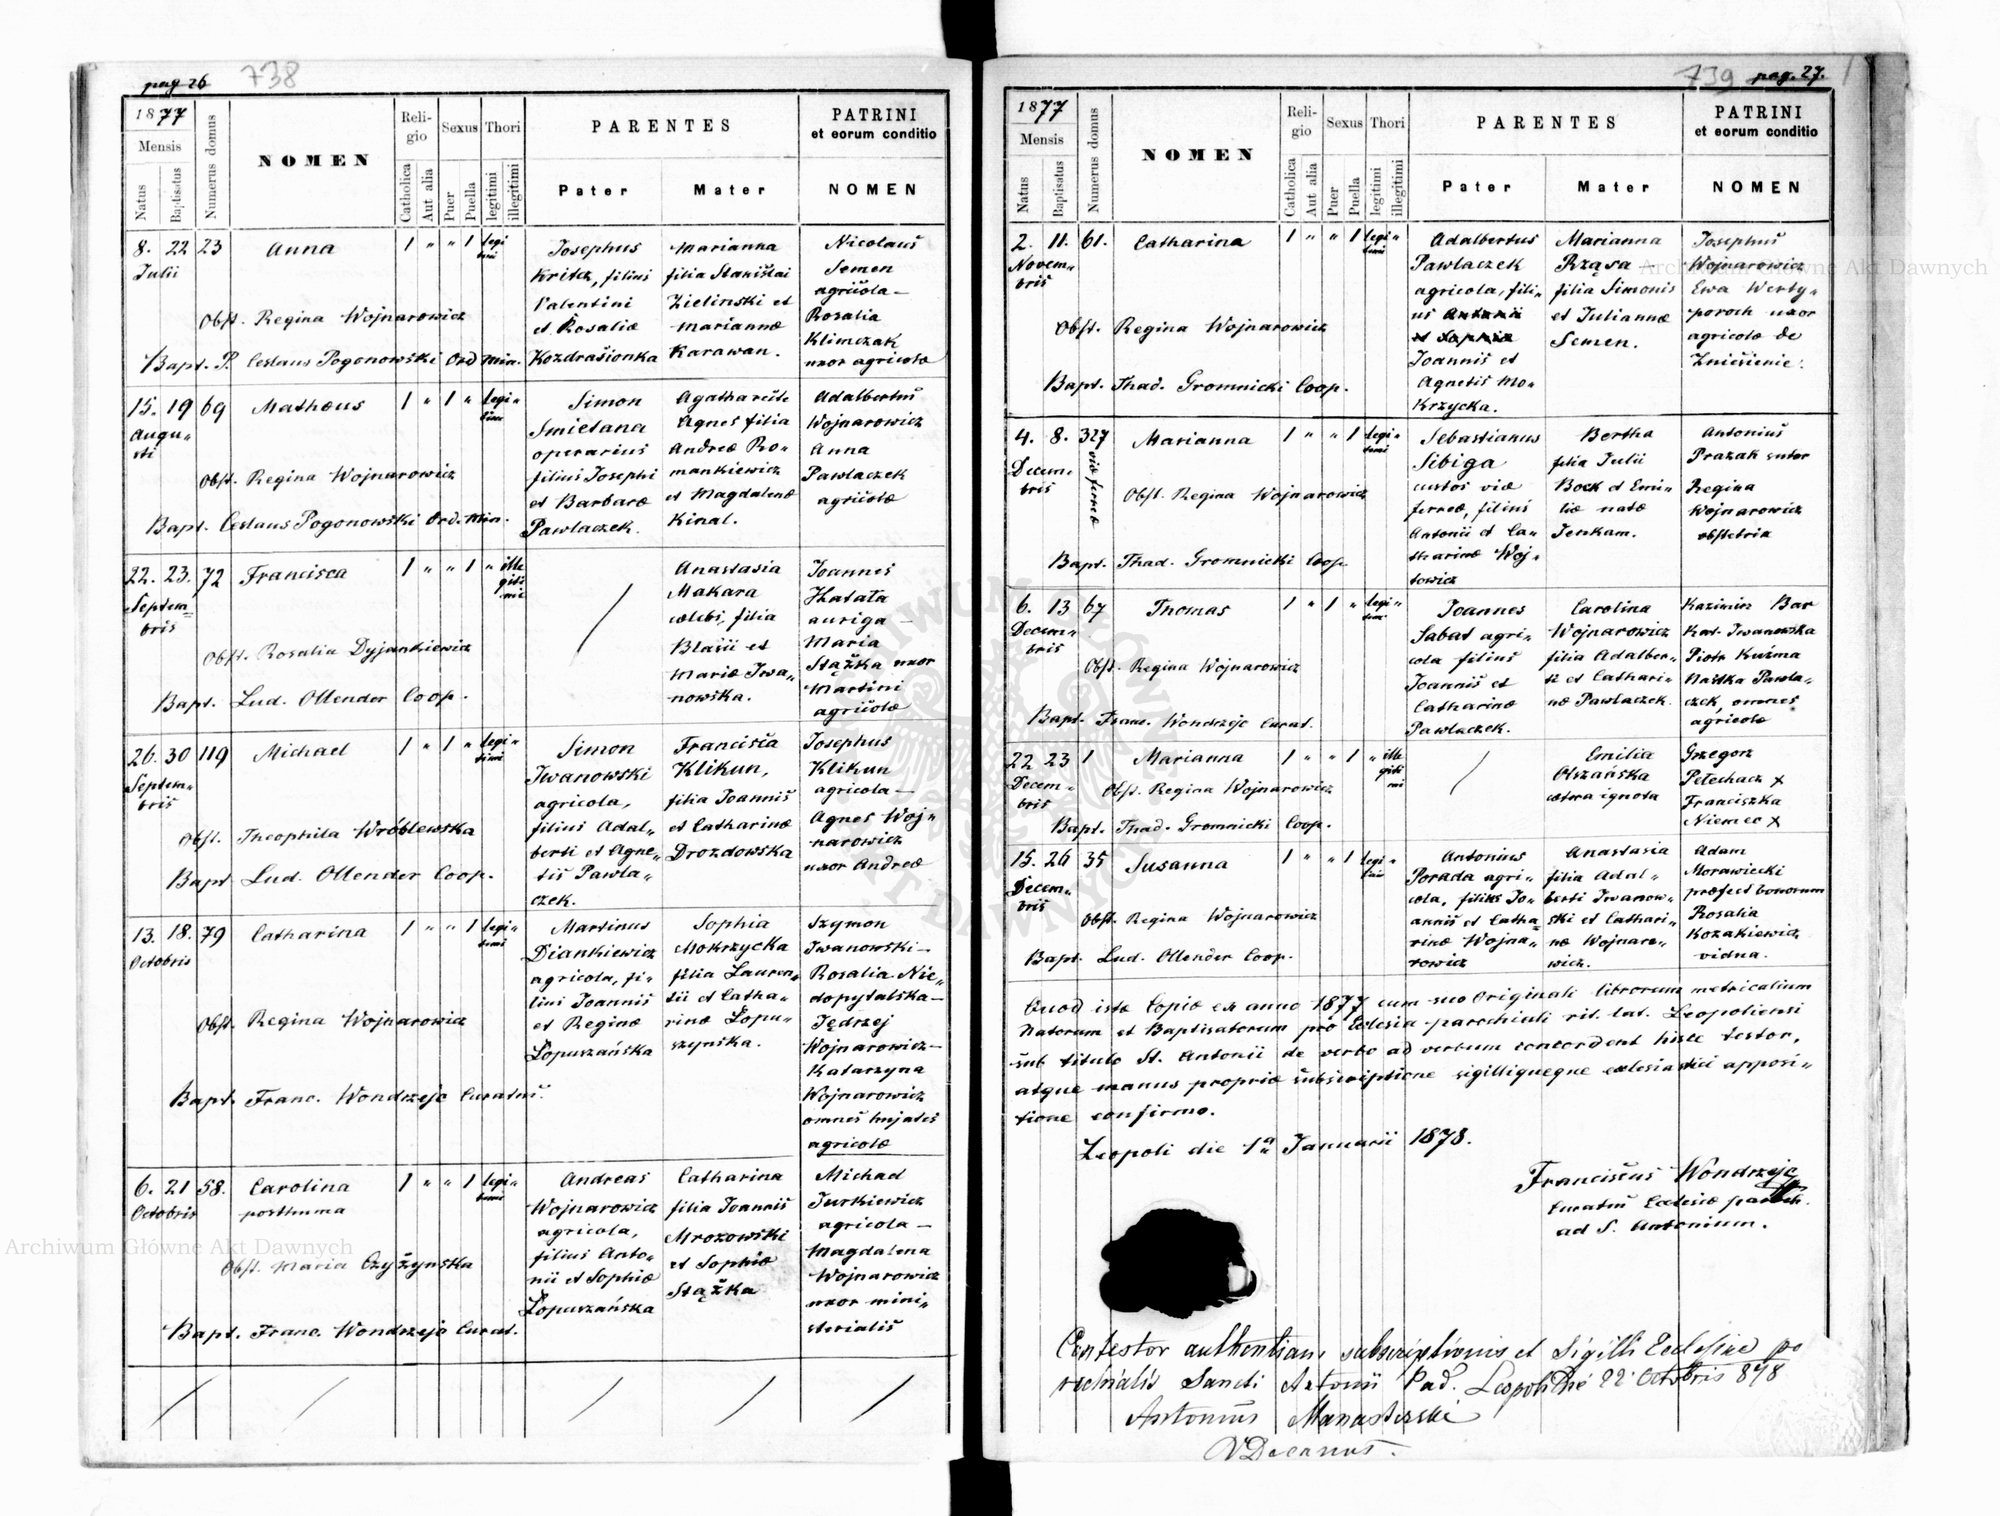 pag 26
738
1877
Mensis
Natus
Baptisatus
Numerus domus
NOMEN
Religio
Catholica
Aut alia
Sexus
Puer
Puella
Thori
legitimi
illegitimi
PARENTES
Pater
Mater
PATRINI
et eorum conditio
NOMEN
8. 22 23 Anna 1 " " 1 legitimi
Julii
Josephus
Kritz, filius
Valentini
et Rosaliæ
Kozdrasionka
Marianna
filia Stanislai
Zielinski et
Mariannæ
Karawan.
Nicolaus
Semen
agricola —
Rosalia
Klimczak
uxor agricolæ
Obst. Regina Wojnarowicz
Bapt. P. Ceslaus Pogonowski Ord Min.
15. 19 69 Mathæus 1 " 1 " legitimi
Augusti
Simon
Smietana
operarius
filius Josephi
et Barbaræ
Pawlaczek.
Agatha recte
Agnes filia
Andreæ Romankiewicz
et Magdalenæ
Kinal.
Adalbertus
Wojnarowicz
Anna
Pawlaczek
agricolæ
Obst. Regina Wojnarowicz
Bapt. Ceslaus Pogonowski Ord. Min.
22. 23. 72 Francisca 1 " " 1 " illegitimi
Septembris
Anastasia
Makara
cœlebs, filia
Blasii et
Mariæ Iwanowska.
Joannes
Hatata
auriga —
Maria
Stążka uxor
Martini
agricolæ
Obst. Rosalia Dyjankiewicz
Bapt. Lud. Ollender Coop.
26. 30 119 Michael 1 " 1 " legitimi
Septembris
Simon
Iwanowski
agricola,
filius Adalberti et Agnetis Pawlaczek.
Francisca
Klikun,
filia Joannis
et Catharinæ
Drozdowska
Josephus
Klikun
agricola —
Agnes Wojnarowicz
uxor Andreæ
Obst. Theophila Wróblewska
Bapt Lud. Ollender Coop.
13. 18. 79 Catharina 1 " " 1 legitimi
Octobris
Martinus
Diankiewicz
agricola, filius Joannis
et Reginæ
Łopuszańska
Sophia
Mokrzycka
filia Laurentii et Catharinæ Łopuszynska.
Szymon
Iwanowski —
Rosalia Niedopytalska —
Jędrzej
Wojnarowicz —
Katarzyna
Wojnarowicz
omnes hujates
agricolæ
Obst. Regina Wojnarowicz
Bapt. Franc. Wondrzejc Curatus.
6. 21 58. Carolina 1 " " 1 legitimi
Octobris posthuma
Andreas
Wojnarowicz
agricola,
filius Antonii et Sophiæ
Łopuszańska
Catharina
filia Joannis
Mrozowski
et Sophiæ
Stążka
Michael
Jurkiewicz
agricola —
Magdalena
Wojnarowicz
uxor ministerialis
Obst. Maria Czyżynska
Bapt. Franc. Wondrzejc Curat.
739
pag. 27.
1877
Mensis
Natus
Baptisatus
Numerus domus
NOMEN
Religio
Catholica
Aut alia
Sexus
Puer
Puella
Thori
legitimi
illegitimi
PARENTES
Pater
Mater
PATRINI
et eorum conditio
NOMEN
2. 11. 61. Catharina 1 " " 1 legitimi
Novembris
Adalbertus
Pawlaczek
agricola, filius Antonii
et Sophiæ
Joannis et
Agnetis Mokrzycka.
Marianna
Rząsa —
filia Simonis
et Juliannæ
Semen.
Josephus
Wojnarowicz
Ewa Wertyporoch uxor
agricolæ de
Zniesienie.
Obst. Regina Wojnarowicz
Bapt. Thad. Gromnicki Coop.
4. 8. 327 viæ ferreæ Marianna 1 " " 1 legitimi
Decembris
Sebastianus
Sibiga
custos viæ
ferreæ, filius
Antonii et Catharinæ Wojtowicz
Bertha
filia Julii
Bock et Emiliæ natæ
Jenkam.
Antonius
Prazak sutor
Regina
Wojnarowicz
obstetrix
Obst. Regina Wojnarowicz
Bapt. Thad. Gromnicki Coop
6. 13 67 Thomas 1 " 1 " legitimi
Decembris
Joannes
Sabat agricola filius
Joannis et
Catharinæ
Pawlaczek.
Carolina
Wojnarowicz
filia Adalberti et Catharinæ Pawlaczek.
Kazimir Bar
Kat. Iwanowska
Piotr Kuźma
Nastka Pawlaczek, omnes
agricolæ
Obst. Regina Wojnarowicz
Bapt. Franc. Wondrzejc Curat.
22 23 1 Marianna 1 " " 1 " illegitimi
Decembris
Emilia
Olszańska
cætera ignota
Grzegorz
Petechacz x
Franciszka
Niemec x
Obst. Regina Wojnarowicz
Bapt. Thad. Gromnicki Coop.
15. 26 35 Susanna 1 " " 1 legitimi
Decembris
Antonius
Porada agricola, filius Joannis et Catharinæ Wojnarowicz
Anastasia
filia Adalberti Iwanowski et Catharinæ Wojnarowicz.
Adam
Morawiecki
præfect bonorum
Rosalia
Kozakiewicz
vidua.
Obst. Regina Wojnarowicz
Bapt. Lud. Ollender Coop.
Quod istæ Copiæ ex anno 1877 cum suo Originali librorum metricalium
Natorum et Baptisatorum pro Ecclesia parochiali rit. lat. Leopoliensi
sub titulo St. Antonii de verbo ad verbum concordent hisce testor,
atque manus propriæ subscriptione sigilliqueque ecclesiastici appositione confirmo.
Leopoli die 1a Januarii 1878.
Franciscus Wondrzejc
Curatus Ecclesiæ paroch.
ad S. Antonium.
Contestor authentiam subscriptionis et Sigilli Ecclesiæ parochialis Sancti Antonii Pad. Leopoli die 22 Octobris 878
Antonius Manasterski
VDecanus.
Archiwum Główne Akt Dawnych
Archiwum Główne Akt Dawnych
ARCHIWUM GŁÓWNE AKT DAWNYCH